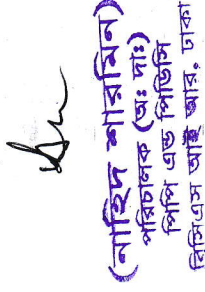 (নাহিদ শারমিন)
পরিচালক (অঃ দাঃ)
পিপি এন্ড পিডিসি
বিসিএস আই আর, ঢাকা